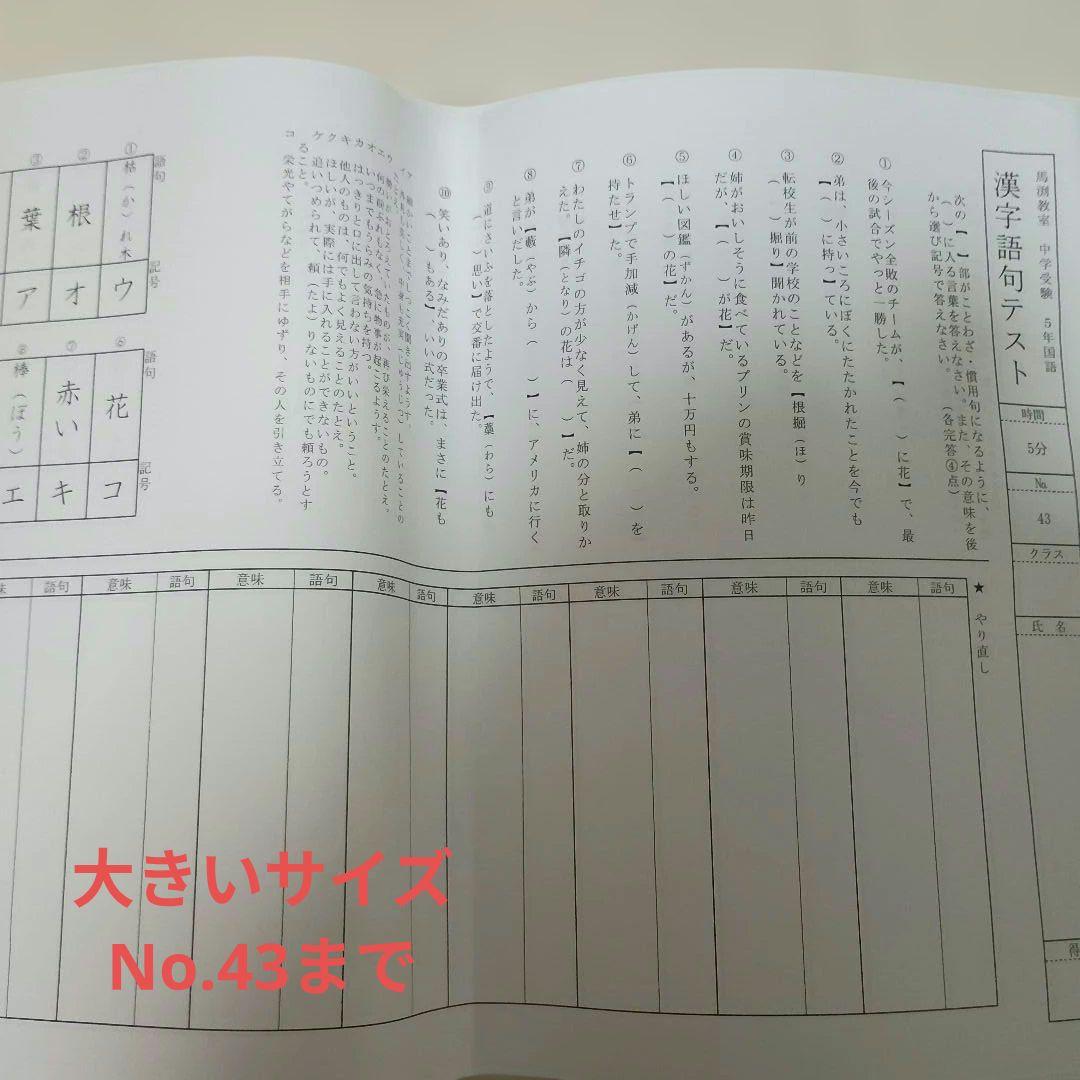 馬渕教室 中学受験 5年国語
漢字語句テスト
時間
5分
№
43
クラス
氏名
得
次の【 】部がことわざ・慣用句になるように、
( )に入る言葉を答えなさい。また、その意味を後
から選び記号で答えなさい。 (各完答④点)
① 今シーズン全敗のチームが、【( )に花】で、最
後の試合でやっと一勝した。
② 弟は、小さいころにぼくにたたかれたことを今でも
【( )に持っ】ている。
③ 転校生が前の学校のことなどを【根掘(ほ)り
( )掘り】聞かれている。
④ 姉がおいしそうに食べているプリンの賞味期限は昨日
だが、【( )が花】だ。
⑤ ほしい図鑑(ずかん)があるが、十万円もする。
【( )の花】だ。
⑥ トランプで手加減(かげん)して、弟に【( )を
持たせ】た。
⑦ わたしのイチゴの方が少なく見えて、姉の分と取りか
えた。【隣(となり)の花は( )】だ。
⑧ 弟が【藪(やぶ)から( )】に、アメリカに行く
と言いだした。
⑨ 道にさいふを落としたようで、【藁(わら)にも
( )思い】で交番に届け出た。
⑩ 笑いあり、なみだありの卒業式は、まさに【花も
( )もある】、いい式だった。
ア 細かいことまでしつこく聞き出すようす。
ウ
エ 何の前ぶれもなく、急に物事が起こるようす。
オ いつまでもうらみの気持ちを持つ。
カ はっきりと口に出して言わない方がいいということ。
キ 他人のものは、何でもよく見えることのたとえ。
ク ほしいが、実際には手に入れることができないもの。
ケ 追いつめられて、頼(たよ)りないものにでも頼ろうとす
ること。
コ 栄光やてがらなどを相手にゆずり、その人を引き立てる。
語句
記号
① 枯(か)れ木
ウ
② 根
オ
③ 葉
ア
語句
記号
⑥ 花
コ
⑦ 赤い
キ
⑧ 棒(ぼう)
エ
★ やり直し
語句 意味
語句 意味
語句 意味
語句 意味
語句 意味
語句 意味
語句 意味
語句
大きいサイズ
No.43まで